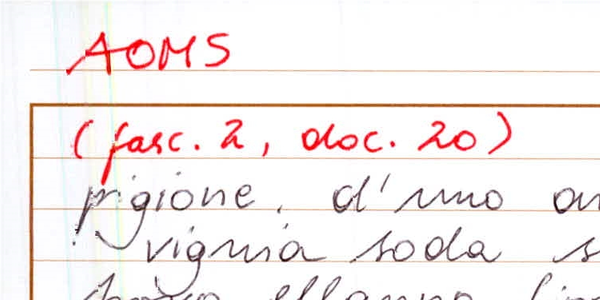 AOMS
(fasc. 2, doc. 20)
pigione. d'uno
vignia soda